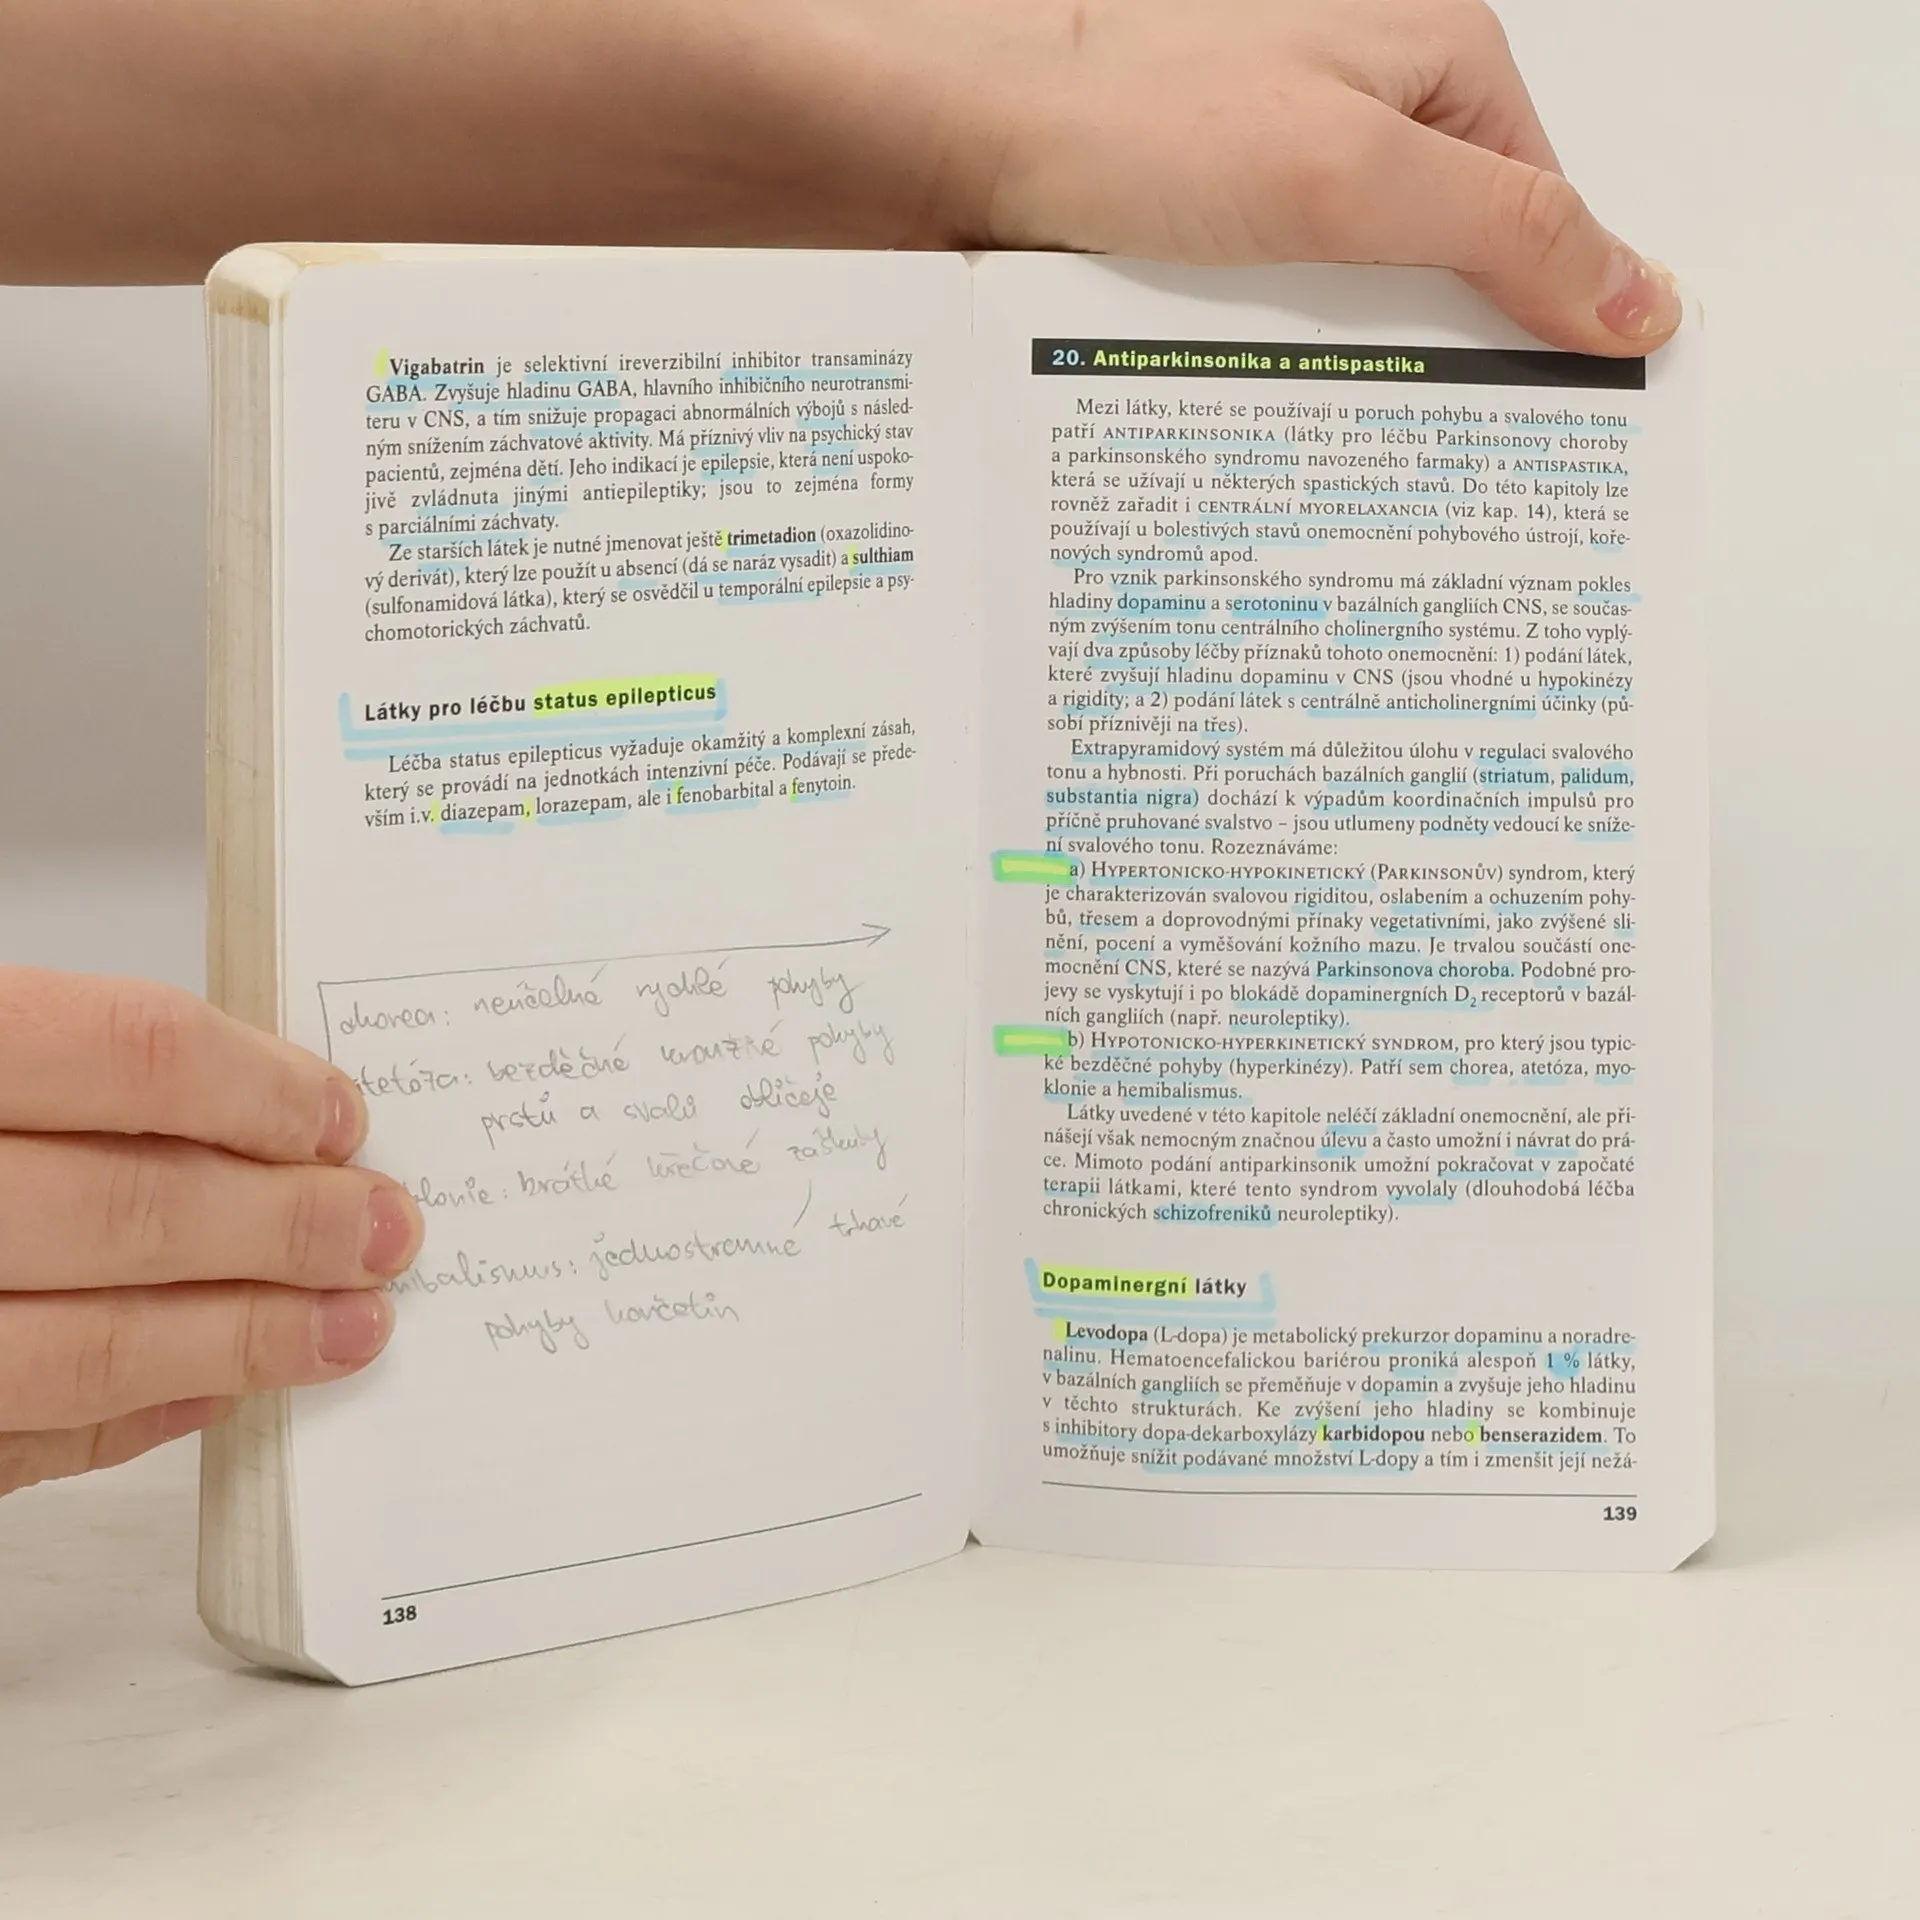 Vigabatrin je selektivní ireverzibilní inhibitor transaminázy
GABA. Zvyšuje hladinu GABA, hlavního inhibičního neurotransmi-
teru v CNS, a tím snižuje propagaci abnormálních výbojů s násled-
ným snížením záchvatové aktivity. Má příznivý vliv na psychický stav
pacientů, zejména dětí. Jeho indikací je epilepsie, která není uspoko-
jivě zvládnuta jinými antiepileptiky; jsou to zejména formy
s parciálními záchvaty.
Ze starších látek je nutné jmenovat ještě trimetadion (oxazolidino-
vý derivát), který lze použít u absencí (dá se naráz vysadit) a sulthiam
(sulfonamidová látka), který se osvědčil u temporální epilepsie a psy-
chomotorických záchvatů.
Látky pro léčbu status epilepticus
Léčba status epilepticus vyžaduje okamžitý a komplexní zásah,
který se provádí na jednotkách intenzivní péče. Podávají se přede-
vším i.v. diazepam, lorazepam, ale i fenobarbital a fenytoin.
chorea: neúčelné rychlé pohyby
tetóza: bezděčné kroužívé pohyby
prstů a svalů obličeje
klonie: krátké křečové záškuby
mibalismus: jednostranné trhavé
pohyby končetin
138
20. Antiparkinsonika a antispastika
Mezi látky, které se používají u poruch pohybu a svalového tonu
patří ANTIPARKINSONIKA (látky pro léčbu Parkinsonovy choroby
a parkinsonského syndromu navozeného farmaky) a ANTISPASTIKA,
která se užívají u některých spastických stavů. Do této kapitoly lze
rovněž zařadit i CENTRÁLNÍ MYORELAXANCIA (viz kap. 14), která se
používají u bolestivých stavů onemocnění pohybového ústrojí, koře-
nových syndromů apod.
Pro vznik parkinsonského syndromu má základní význam pokles
hladiny dopaminu a serotoninu v bazálních gangliích CNS, se součas-
ným zvýšením tonu centrálního cholinergního systému. Z toho vyplý-
vají dva způsoby léčby příznaků tohoto onemocnění: 1) podání látek,
které zvyšují hladinu dopaminu v CNS (jsou vhodné u hypokinézy
a rigidity; a 2) podání látek s centrálně anticholinergními účinky (pů-
sobí příznivěji na třes).
Extrapyramidový systém má důležitou úlohu v regulaci svalového
tonu a hybnosti. Při poruchách bazálních ganglií (striatum, palidum,
substantia nigra) dochází k výpadům koordinačních impulsů pro
příčně pruhované svalstvo – jsou utlumeny podněty vedoucí ke sníže-
ní svalového tonu. Rozeznáváme:
a) HYPERTONICKO-HYPOKINETICKÝ (PARKINSONŮV) syndrom, který
je charakterizován svalovou rigiditou, oslabením a ochuzením pohy-
bů, třesem a doprovodnými přínaky vegetativními, jako zvýšené sli-
nění, pocení a vyměšování kožního mazu. Je trvalou součástí one-
mocnění CNS, které se nazývá Parkinsonova choroba. Podobné pro-
jevy se vyskytují i po blokádě dopaminergních D2 receptorů v bazál-
ních gangliích (např. neuroleptiky).
b) HYPOTONICKO-HYPERKINETICKÝ SYNDROM, pro který jsou typic-
ké bezděčné pohyby (hyperkinézy). Patří sem chorea, atetóza, myo-
klonie a hemibalismus.
Látky uvedené v této kapitole neléčí základní onemocnění, ale při-
nášejí však nemocným značnou úlevu a často umožní i návrat do prá-
ce. Mimoto podání antiparkinsonik umožní pokračovat v započaté
terapii látkami, které tento syndrom vyvolaly (dlouhodobá léčba
chronických schizofreniků neuroleptiky).
Dopaminergní látky
Levodopa (L-dopa) je metabolický prekurzor dopaminu a noradre-
nalinu. Hematoencefalickou bariérou proniká alespoň 1 % látky,
v bazálních gangliích se přeměňuje v dopamin a zvyšuje jeho hladinu
v těchto strukturách. Ke zvýšení jeho hladiny se kombinuje
s inhibitory dopa-dekarboxylázy karbidopou nebo benserazidem. To
umožňuje snížit podávané množství L-dopy a tím i zmenšit její nežá-
139